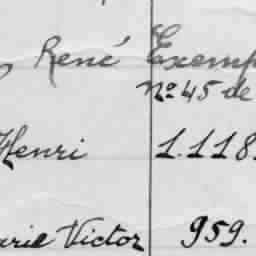 René Exemp
nº 45 de
Henri 1.118.
arie Victor 959.